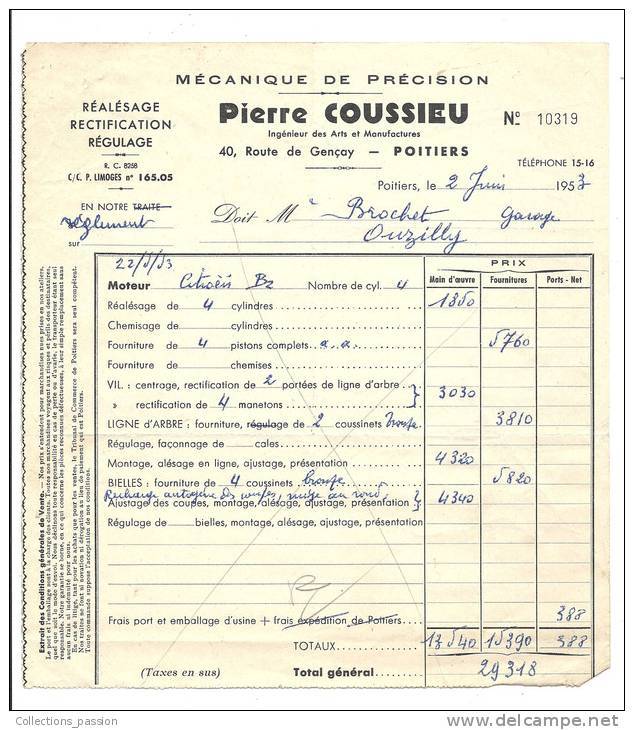 MÉCANIQUE DE PRÉCISION
RÉALÉSAGE
RECTIFICATION
RÉGULAGE
R. C. 8258
C/C. P. LIMOGES nº 165.05
Pierre COUSSIEU
Ingénieur des Arts et Manufactures
40, Route de Gençay — POITIERS
Nº 10319
TÉLÉPHONE 15-16
Poitiers, le 2 Juin 1953
EN NOTRE TRAITE
règlement
sur
Doit M Brochet Garage
Ouzilly
22/5/53
PRIX
Main d'œuvre Fournitures Ports - Net
Moteur Citroën B2 Nombre de cyl. 4
Réalésage de 4 cylindres 1350
Chemisage de cylindres
Fourniture de 4 pistons complets a.a. 5760
Fourniture de chemises
VIL. : centrage, rectification de 2 portées de ligne d'arbre
» rectification de 4 manetons 3030
LIGNE D'ARBRE : fourniture, régulage de 2 coussinets bronze 3810
Régulage, façonnage de cales
Montage, alésage en ligne, ajustage, présentation 4320
BIELLES : fourniture de 4 coussinets bronze 5820
Recharge autogène des coupes, mise au rond
Ajustage des coupes, montage, alésage, ajustage, présentation 4340
Régulage de bielles, montage, alésage, ajustage, présentation
Frais port et emballage d'usine + frais expédition de Poitiers 388
TOTAUX 13540 15390 388
(Taxes en sus) Total général 29318
Extrait des Conditions générales de Vente. — Nos prix s'entendent pour marchandises nues prises en nos ateliers.
Le port et l'emballage sont à la charge des clients. Toutes nos marchandises voyagent aux risques et périls des destinataires,
quel que soit le mode d'envoi. Nous déclinons toute responsabilité en cas de perte ou d'avarie, le transporteur étant seul
responsable. Notre garantie se borne, en ce qui concerne les pièces reconnues défectueuses, à leur simple remplacement sans
aucun frais ni indemnité pour nous.
En cas de litige, tant pour les achats que pour les ventes, le Tribunal de Commerce de Poitiers sera seul compétent.
Nos traites ne font ni novation ni dérogation au lieu de paiement qui est Poitiers.
Toute commande suppose l'acceptation de nos conditions.
Collections_passion
www.delcampe.net